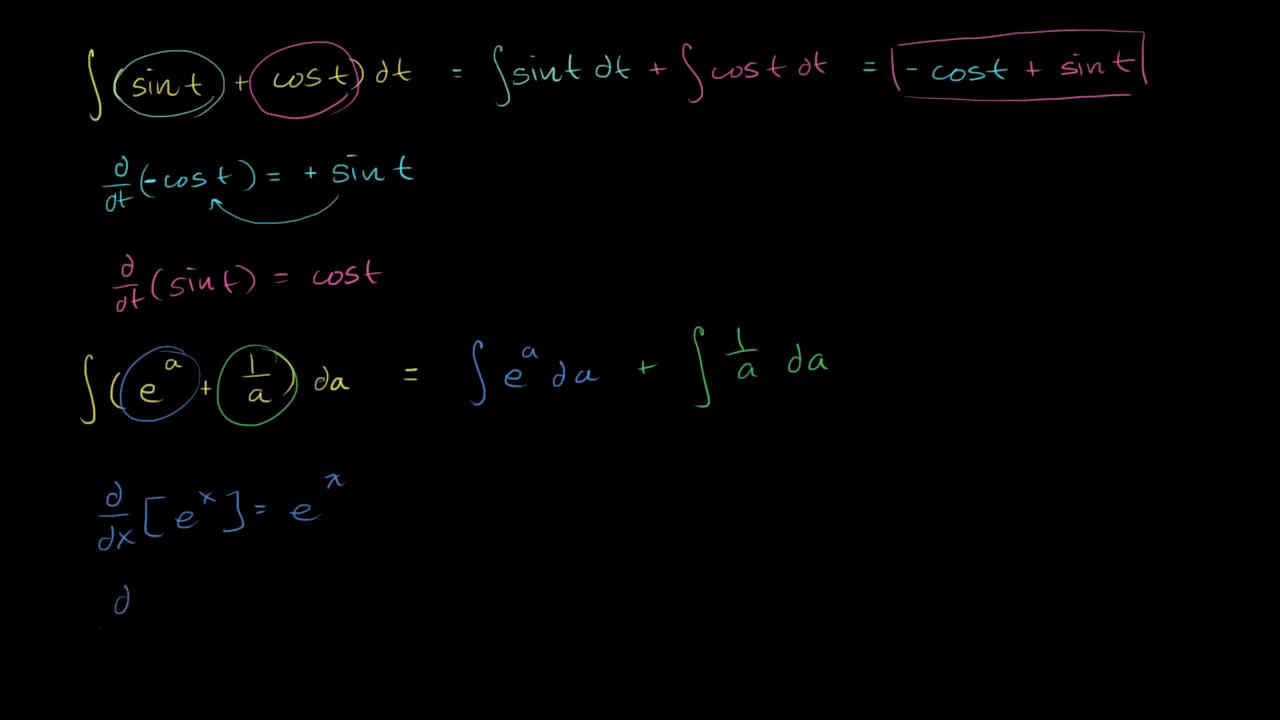 ∫(sin t + cos t) dt = ∫sin t dt + ∫cos t dt = - cos t + sin t
d/dt (-cos t) = + sin t
d/dt (sin t) = cos t
∫(e^a + 1/a) da = ∫e^a da + ∫1/a da
d/dx [e^x] = e^x
d